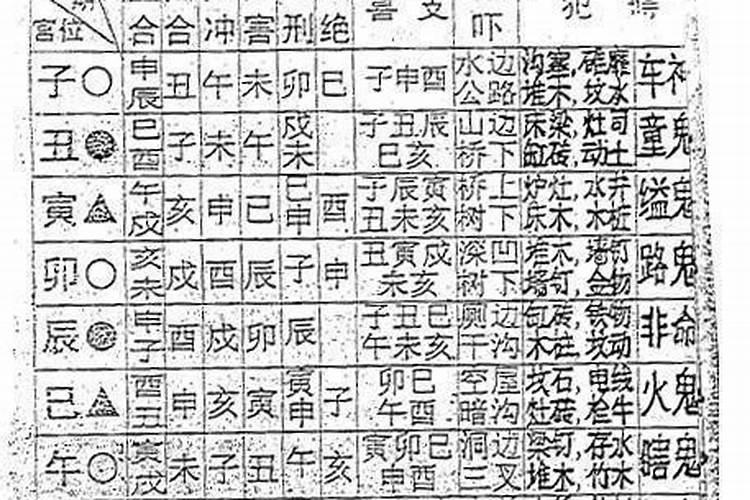 宫位 合 合 冲 害 刑 绝 吓 犯
子 申辰 丑 午 未 卯 巳 子申酉 水边公路 沟塞,碓磨堆木,坟水 车神
丑 巳酉 子 未 午 戍未 子丑辰巳亥 山边桥下 床梁,灶司缸砖,动土 童鬼
寅 午戍 亥 申 巳 巳申 酉 子辰寅丑未亥 桥上树下 炉灶,水井床木,木桩 缢鬼
卯 亥未 戍 酉 辰 子 申 丑寅戍未亥 深凹树下 堆木,墙钉墙钉,金物 路鬼
辰 申子 酉 戍 卯 辰 子丑巳午未亥 厕边干沟 缸砖,铁物木 动 非命
巳 酉丑 申 亥 寅 寅申 子 卯巳午酉 空屋暗沟 坟石,电线灶砖,牛 火鬼
午 寅戍 未 子 丑 午 亥 寅卯巳申酉 洞边三叉 梁钉,存水堆木,竹木 瞎鬼